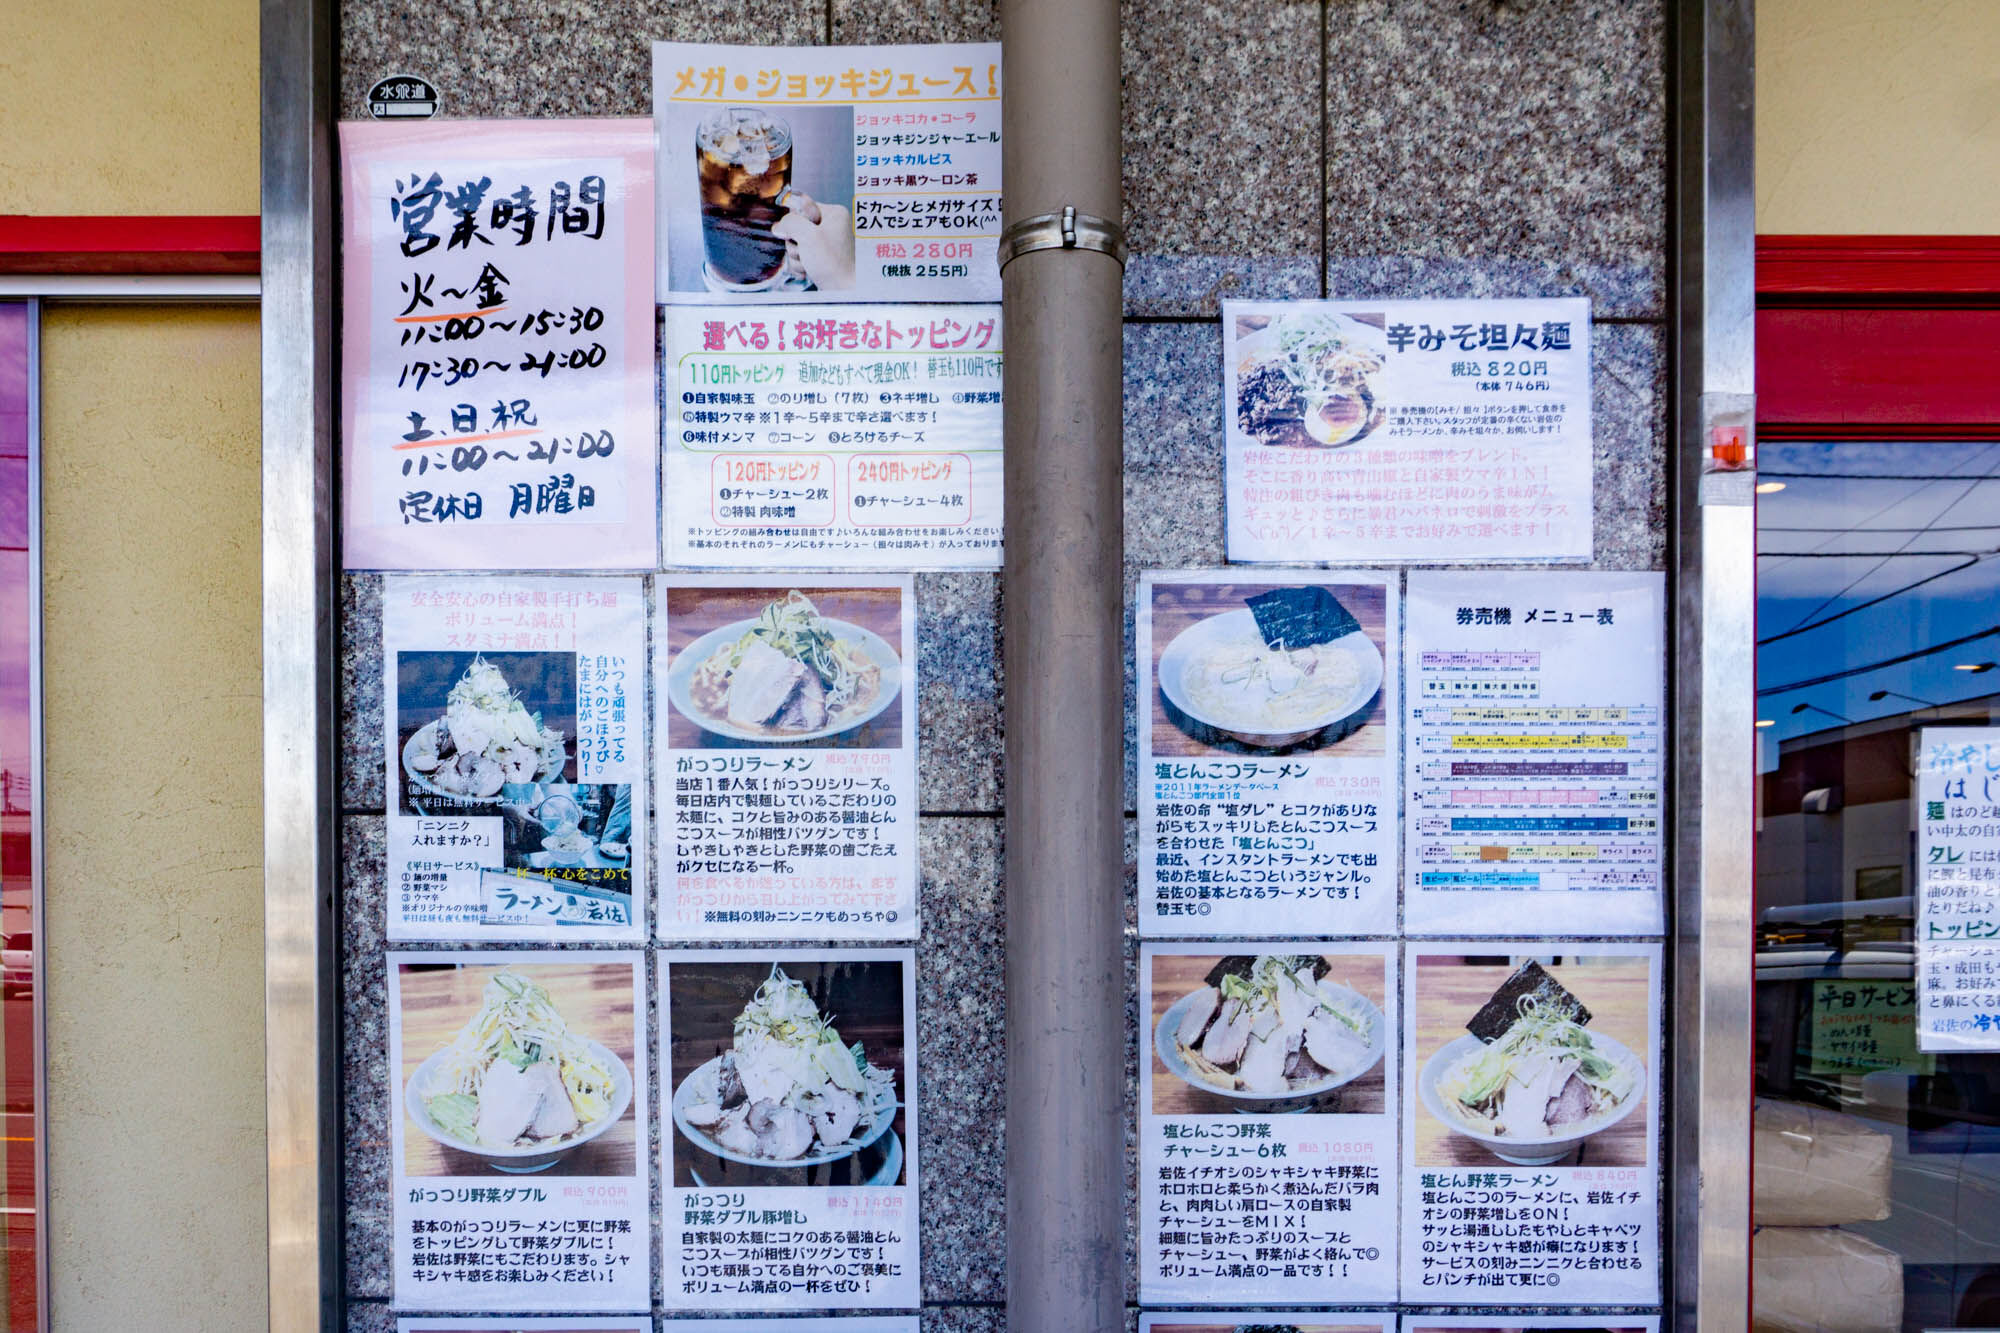 水道
営業時間
火〜金
11:00〜15:30
17:30〜21:00
土、日、祝
11:00〜21:00
定休日 月曜日
メガ・ジョッキジュース！
ジョッキコカ・コーラ
ジョッキジンジャーエール
ジョッキカルピス
ジョッキ黒ウーロン茶
ドカ〜ンとメガサイズ！
2人でシェアもOK(^^
税込 280円
(税抜 255円)
選べる！お好きなトッピング
110円トッピング 追加などもすべて現金OK！ 替玉も110円です
①自家製味玉 ②のり増し（7枚） ③ネギ増し ④野菜増
⑤特製ウマ辛 ※1辛〜5辛まで辛さ選べます！
⑥味付メンマ ⑦コーン ⑧とろけるチーズ
120円トッピング
①チャーシュー2枚
②特製 肉味噌
240円トッピング
①チャーシュー4枚
※トッピングの組み合わせは自由です♪いろんな組み合わせをお楽しみください！
※基本のそれぞれのラーメンにもチャーシュー（担々は肉みそ）が入っております
辛みそ坦々麺
税込 820円
(本体 746円)
※ 券売機の【みそ/ 担々 】ボタンを押して食券を
ご購入下さい。スタッフが定番の辛くない岩佐の
みそラーメンか、辛みそ坦々か、お伺いします！
岩佐こだわりの3種類の味噌をブレンド。
そこに香り高い青山椒と自家製ウマ辛IN！
特注の粗びき肉も噛むほどに肉のうま味がム
ギュッと♪さらに暴君ハバネロで刺激をプラス
＼(^o^)／1辛〜5辛までお好みで選べます！
安全安心の自家製手打ち麺
ボリューム満点！
スタミナ満点！！
いつも頑張ってる
自分へのごほうび♡
たまにはがっつり！
※ 平日は無料サービス中
「ニンニク
入れますか？」
《平日サービス》
① 麺の増量
② 野菜マシ
③ ウマ辛
※オリジナルの辛味噌
平日は昼も夜も無料サービス中！
一杯一杯心をこめて
ラーメン 岩佐
がっつりラーメン 税込 790円
当店1番人気！がっつりシリーズ。
毎日店内で製麺しているこだわりの
太麺に、コクと旨みのある醤油とん
こつスープが相性バツグンです！
しゃきしゃきとした野菜の歯ごたえ
がクセになる一杯。
何を食べるか迷っている方は、まず
がっつりから召し上がってみて下さ
い！ ※無料の刻みニンニクもめっちゃ◎
塩とんこつラーメン 税込 730円
※2011年ラーメンデータベース
塩とんこつ部門全国1位
岩佐の命“塩ダレ”とコクがありな
がらもスッキリしたとんこつスープ
を合わせた「塩とんこつ」
最近、インスタントラーメンでも出
始めた塩とんこつというジャンル。
岩佐の基本となるラーメンです！
替玉も◎
券売機 メニュー表
替玉 麺中盛 麺大盛 麺特盛
餃子6個
餃子3個
がっつり野菜ダブル 税込 900円
基本のがっつりラーメンに更に野菜
をトッピングして野菜ダブルに！
岩佐は野菜にもこだわります。シャ
キシャキ感をお楽しみください！
がっつり 税込 1140円
野菜ダブル豚増し
自家製の太麺にコクのある醤油とん
こつスープが相性バツグンです！
いつも頑張ってる自分へのご褒美に
ボリューム満点の一杯をぜひ！
塩とんこつ野菜
チャーシュー6枚 税込 1080円
岩佐イチオシのシャキシャキ野菜に
ホロホロと柔らかく煮込んだバラ肉
と、肉肉しい肩ロースの自家製
チャーシューをMIX！
細麺に旨みたっぷりのスープと
チャーシュー、野菜がよく絡んで◎
ボリューム満点の一品です！！
塩とん野菜ラーメン 税込 840円
塩とんこつのラーメンに、岩佐イチ
オシの野菜増しをON！
サッと湯通ししたもやしとキャベツ
のシャキシャキ感が癖になります！
サービスの刻みニンニクと合わせる
とパンチが出て更に◎
冷やし
はじ
麺はのど越
い中太の自家
タレには
に鰹と昆布
油の香りと
たりだね♪
トッピン
チャーシュー
玉・成田も
麻。お好み
と鼻にくる
岩佐の冷や
平日サービス